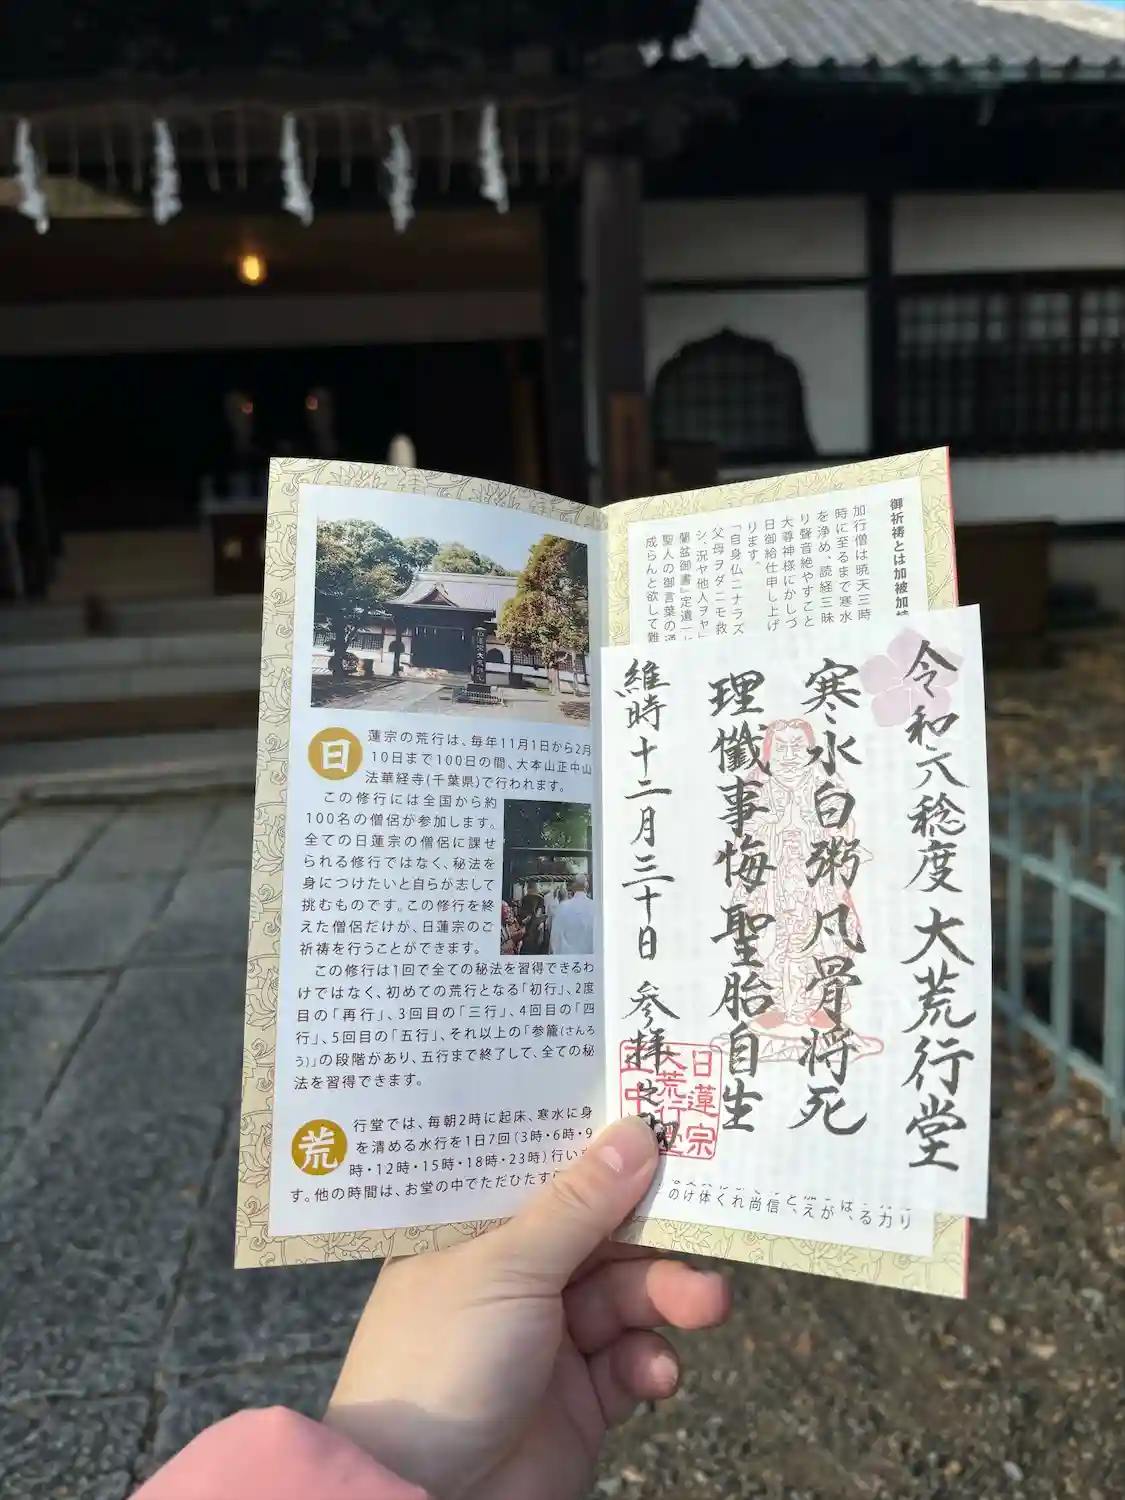 日蓮宗の荒行は、毎年11月1日から2月
10日まで100日の間、大本山正中山
法華経寺(千葉県)で行われます。
この修行には全国から約
100名の僧侶が参加します。
全ての日蓮宗の僧侶に課せ
られる修行ではなく、秘法を
身につけたいと自らが志して
挑むものです。この修行を終
えた僧侶だけが、日蓮宗のご
祈祷を行うことができます。
この修行は1回で全ての秘法を習得できるわ
けではなく、初めての荒行となる「初行」、2度
目の「再行」、3回目の「三行」、4回目の「四
行」、5回目の「五行」、それ以上の「参籠(さんろ
う)」の段階があり、五行まで終了して、全ての秘
法を習得できます。
荒行堂では、毎朝2時に起床、寒水に身
を清める水行を1日7回(3時・6時・9
時・12時・15時・18時・23時)行いま
す。他の時間は、お堂の中でただひたす
御祈祷とは加被加
加行僧は暁天三時
時に至るまで寒水
を浄め、読経三昧
り聲音絶やすこと
大尊神様にかしづ
日御給仕申し上げ
ります。
「自身仏ニナラズ
父母ヲダニモ救
シ、況ヤ他人ヲヤ
蘭盆御書』定遺一
聖人の御言葉の通
成らんと欲して難
令和六稔度 大荒行堂
寒水白粥凡骨将死
理懺事悔聖胎自生
維時十二月三十日 参拝之
日蓮宗
大荒行堂
正中